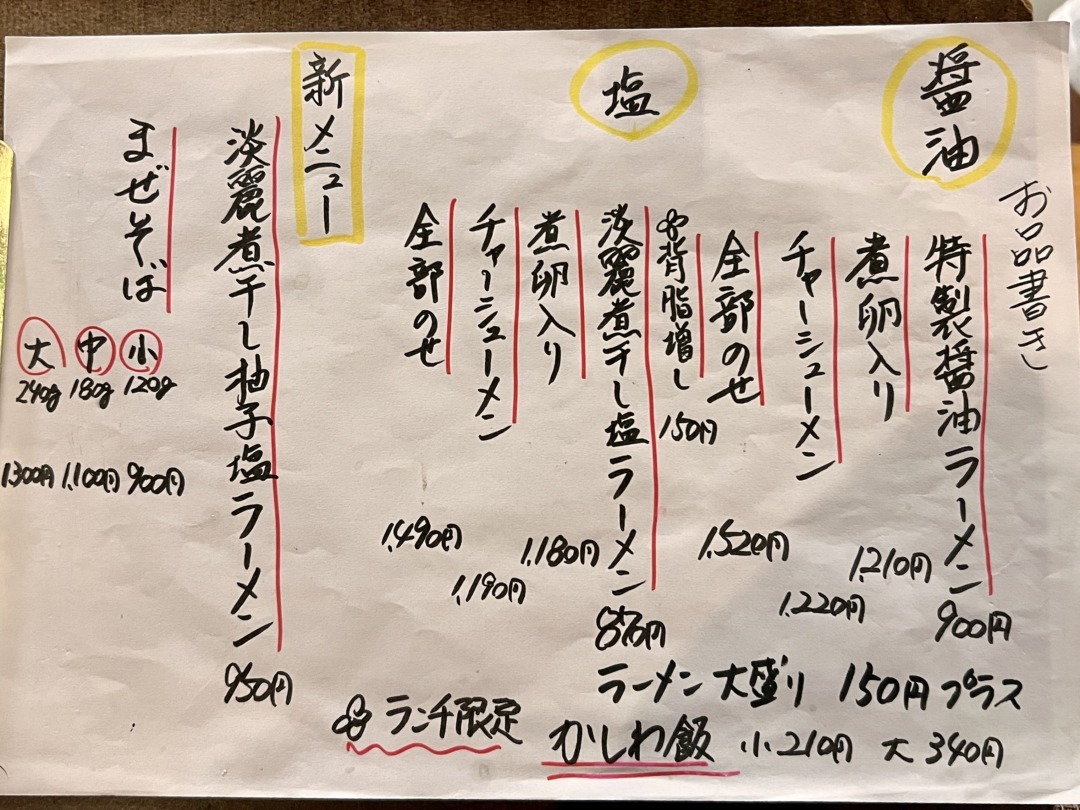 お品書き
醤油
特製醤油ラーメン 900円
煮卵入り 1,210円
チャーシューメン 1,220円
全部のせ 1,520円
背脂増し 150円
塩
淡麗煮干し塩ラーメン 870円
煮卵入り 1,180円
チャーシューメン 1,190円
全部のせ 1,490円
新メニュー
淡麗煮干し柚子塩ラーメン 950円
まぜそば
小 120g 900円
中 180g 1,100円
大 240g 1300円
ラーメン大盛り 150円プラス
ランチ限定 かしわ飯 小210円 大340円